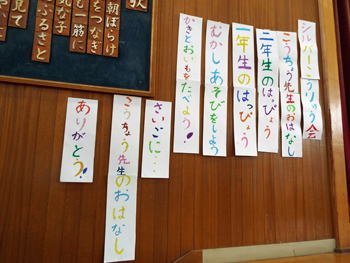 シルバーこうりゅう会
こうちょう先生のおはなし
二年生のはっぴょう
一年生のはっぴょう
むかしあそびをしよう
かきとおいもをたべよう!
さいごに・・・
こうちょう先生のおはなし
ありがとう!
歌
朝ぼらけ
をつなぎ
も一筋に
な子
ふるさと
見て